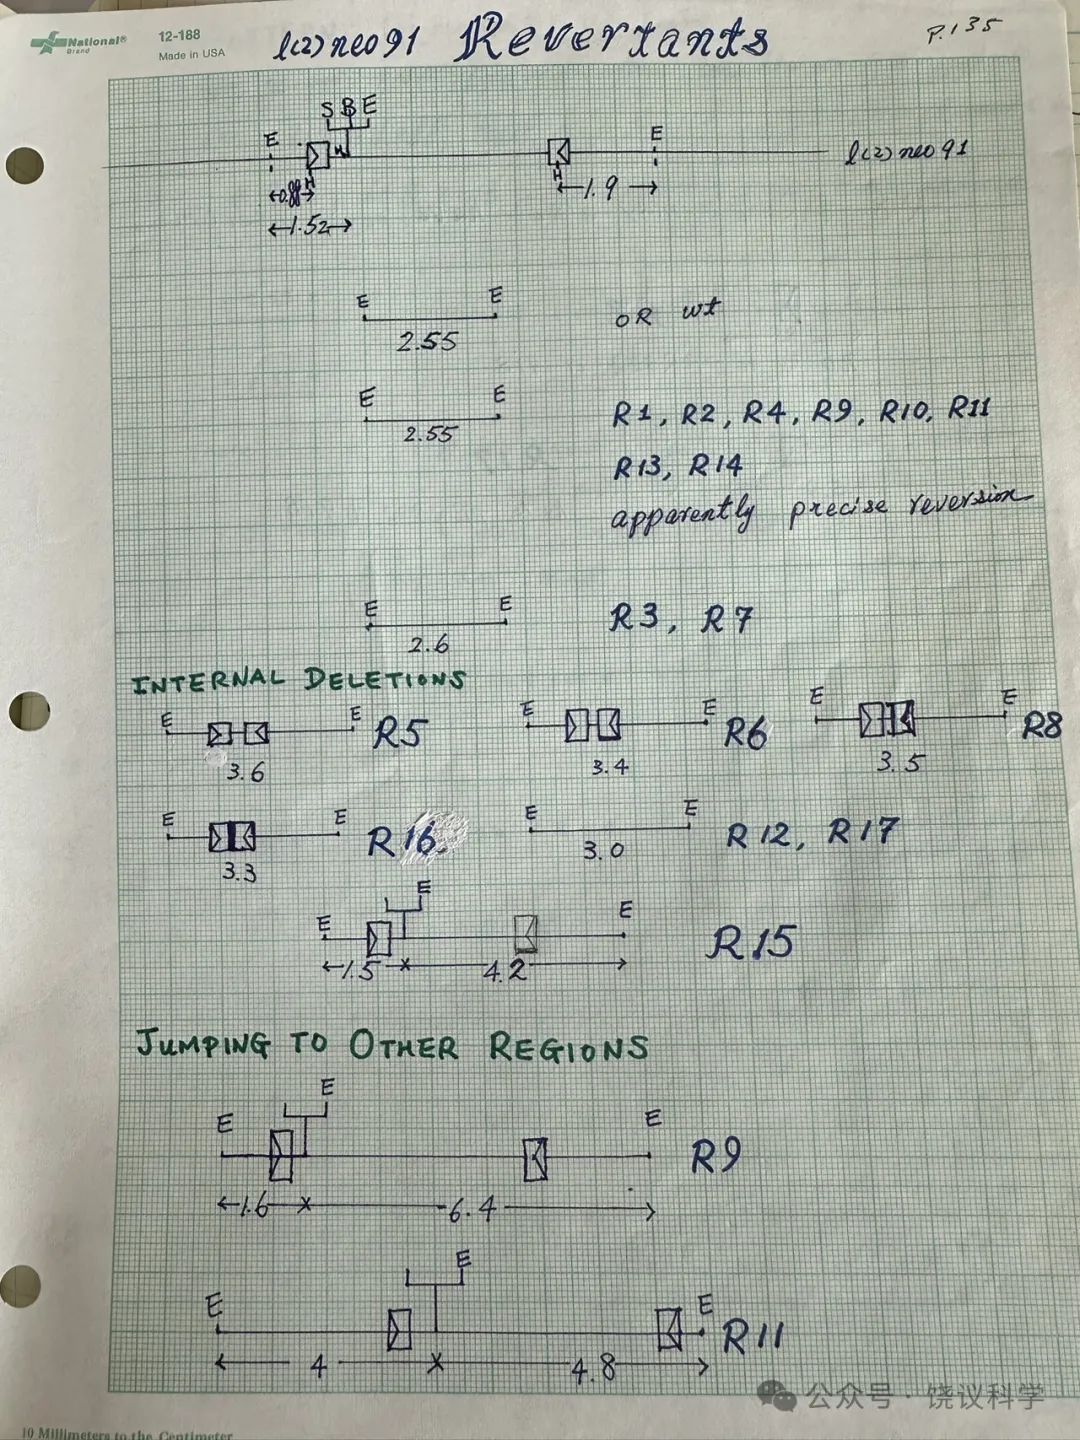 National® Brand
12-188
Made in USA
l(2)neo91 Revertants
P.135
S B E
E
H
E
l(2)neo91
H
H
1.9
1.52
E E
2.55
OR wt
E E
2.55
R1, R2, R4, R9, R10, R11
R13, R14
apparently precise reversion
E E
2.6
R3, R7
INTERNAL DELETIONS
E E R5
3.6
E E R6
3.4
E E R8
3.5
E E R16
3.3
E E R12, R17
3.0
E
E E
R15
1.5 × 4.2
JUMPING TO OTHER REGIONS
E
E E
R9
1.6 × 6.4
E
E E
R11
4 × 4.8
公众号 · 饶议科学
10 Millimeters to the Centimeter